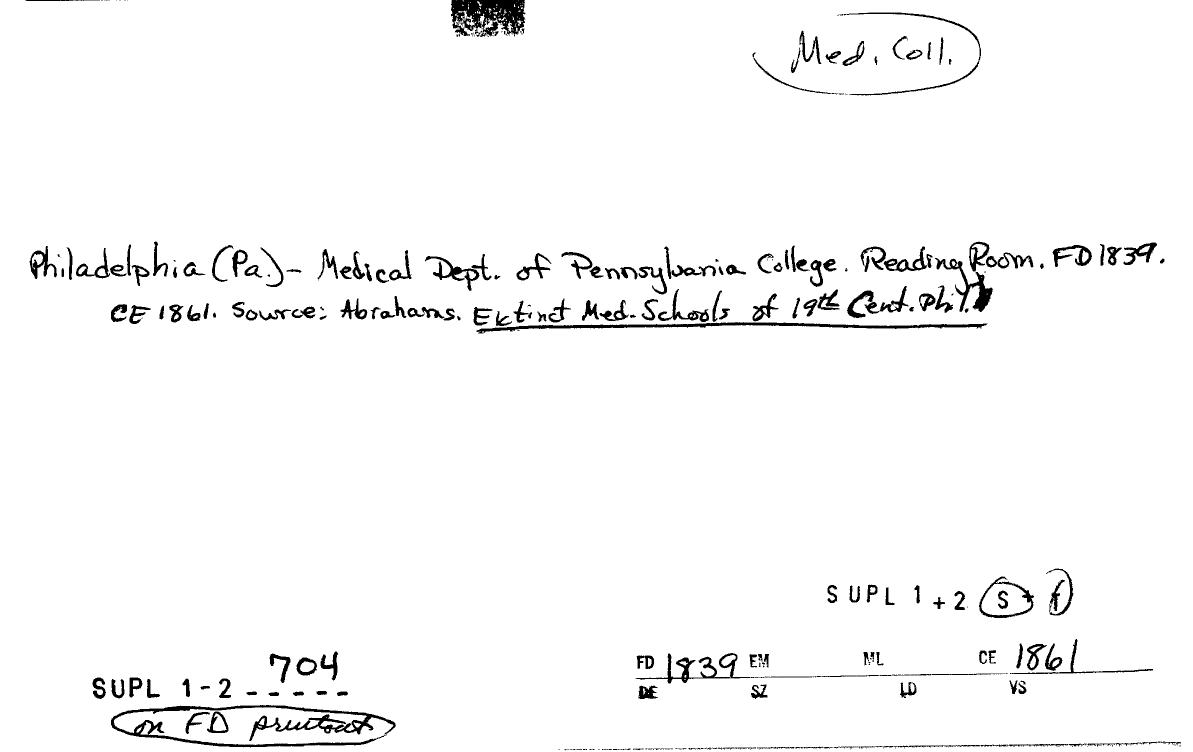 Med. Coll.
Philadelphia (Pa.) - Medical Dept. of Pennsylvania College. Reading Room. FD 1839.
CE 1861. Source: Abrahams. Extinct Med. Schools of 19th Cent. Phil.
SUPL 1 + 2 S + f
704
SUPL 1-2 - - - - -
on FD printout
FD 1839 EM ML CE 1861
DE SZ LD VS